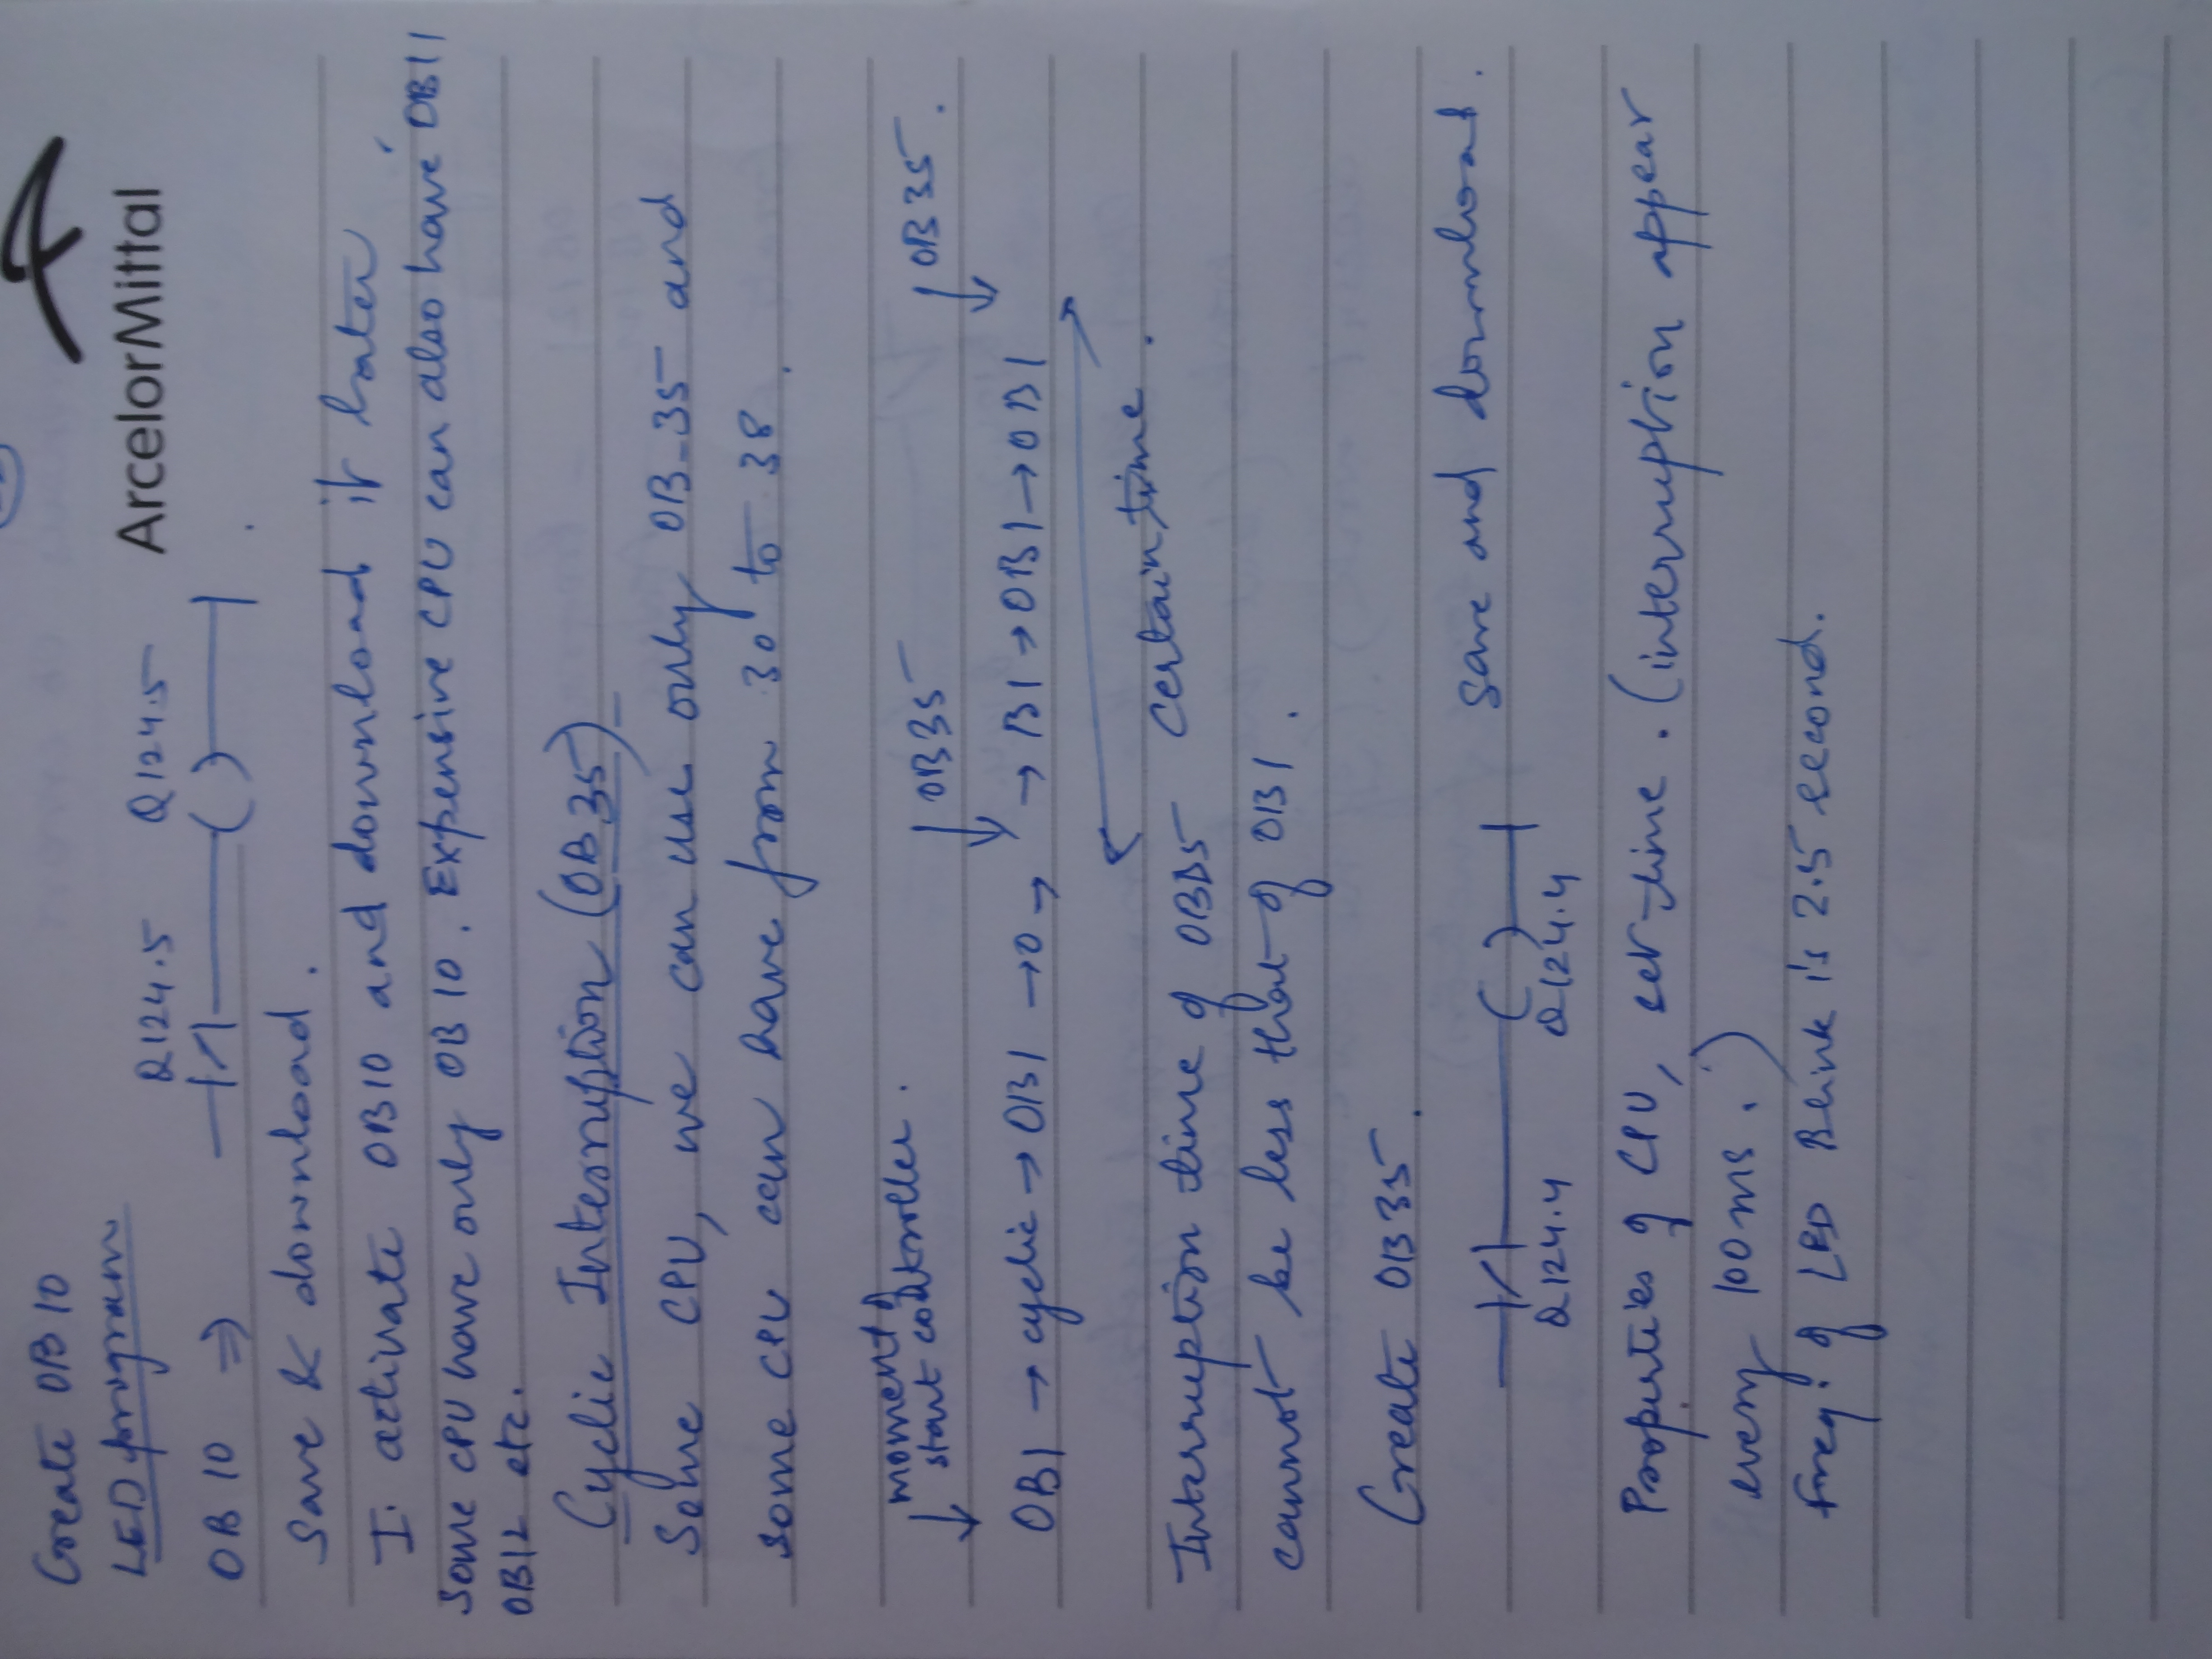 ArcelorMittal
Create OB 10
LED program
Q124.5 Q124.5
OB 10 ⇒ —|/|——( )——|
Save & download.
I. activate OB10 and download it later
Some CPU have only OB 10. Expensive CPU can also have OB11
OB12 etc.
Cyclic Interruption (OB35)
Some CPU, we can use only OB-35 and
some CPU can have from 30 to 38.
moment of
↓ start controller. ↓ OB35 ↓ OB35.
OB1 → cyclic → OB1 → O → → B1 → OB1 → OB1
Interruption time of OB35 certain time.
cannot be less that of OB1.
Create OB35.
—|/|——( )——| Save and download.
Q124.4 Q124.4
Properties of CPU, set time. (interruption appear
every 100 ms.)
freq. of LED Blink is 2.5 second.